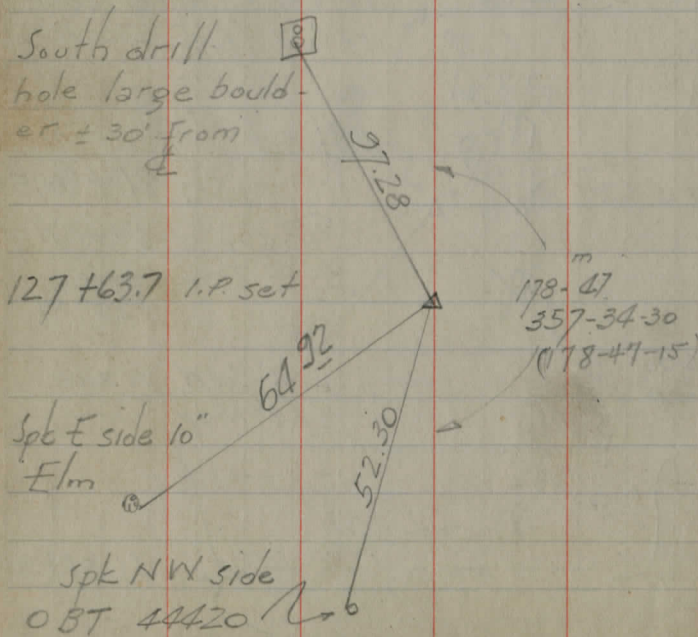 South drill
hole large bould-
er ± 30' from
℄
97.28
127+63.7 I.P. set
m
178-47
357-34-30
(178-47-15)
64.92
Spk E side 10"
Elm
52.30
spk NW side
OBT 44420